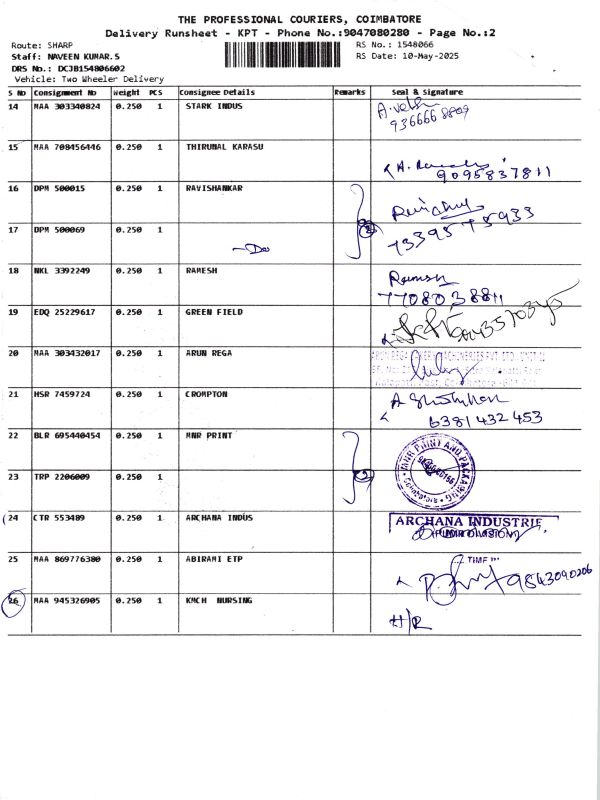 THE PROFESSIONAL COURIERS, COIMBATORE
Delivery Runsheet - KPT - Phone No.:9047080280 - Page No.:2
Route: SHARP
RS No.: 1548066
Staff: NAVEEN KUMAR.S
RS Date: 10-May-2025
DRS No.: DCJB154806602
Vehicle: Two Wheeler Delivery
S No Consignment No Weight PCS Consignee Details Remarks Seal & Signature
14 MAA 303340824 0.250 1 STARK INDUS
936666 8809
15 MAA 708456446 0.250 1 THIRUNAL KARASU
9095837811
16 DPM 500015 0.250 1 RAVISHANKAR
2
7339575933
17 DPM 500069 0.250 1
~Do
18 NKL 3392249 0.250 1 RAMESH
Ramesh
7708038811
19 EDQ 25229617 0.250 1 GREEN FIELD
20 MAA 303432017 0.250 1 ARUN REGA
21 HSR 7459724 0.250 1 CROMPTON
6381 432 453
22 BLR 695440454 0.250 1 MNR PRINT
MNR PRINT AND PACKAGING
Coimbatore
23 TRP 2206009 0.250 1
24 CTR 553489 0.250 1 ARCHANA INDUS
ARCHANA INDUSTRIE
(PUMP DIVISION)
25 MAA 869776380 0.250 1 ABIRAMI ETP
TIME
9843090206
26 MAA 945326905 0.250 1 KMCH NURSING
H/R